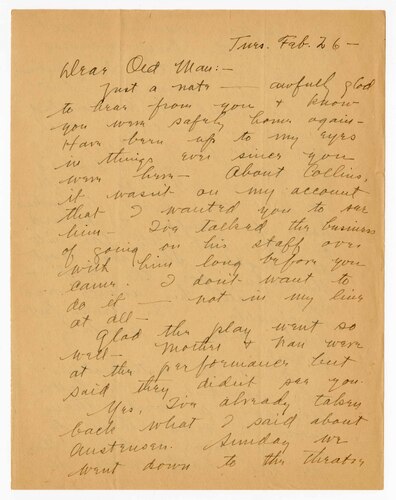 Tues. Feb. 26 —
Dear Old Man:-
Just a note — awfully glad
to hear from you & know
you were safely home again-
Have been up to my eyes
in things ever since you
were here — About Collins,
it wasn't on my account
that I wanted you to see
him — I've talked the business
of going on his staff over
with him long before you
came. I don't want to
do it — not in my line
at all—
Glad the play went so
well — Mother & Nan were
at the performance but
said they didn't see you.
Yes, I've already taken
back what I said about
Austensen. Sunday we
went down to the theatre